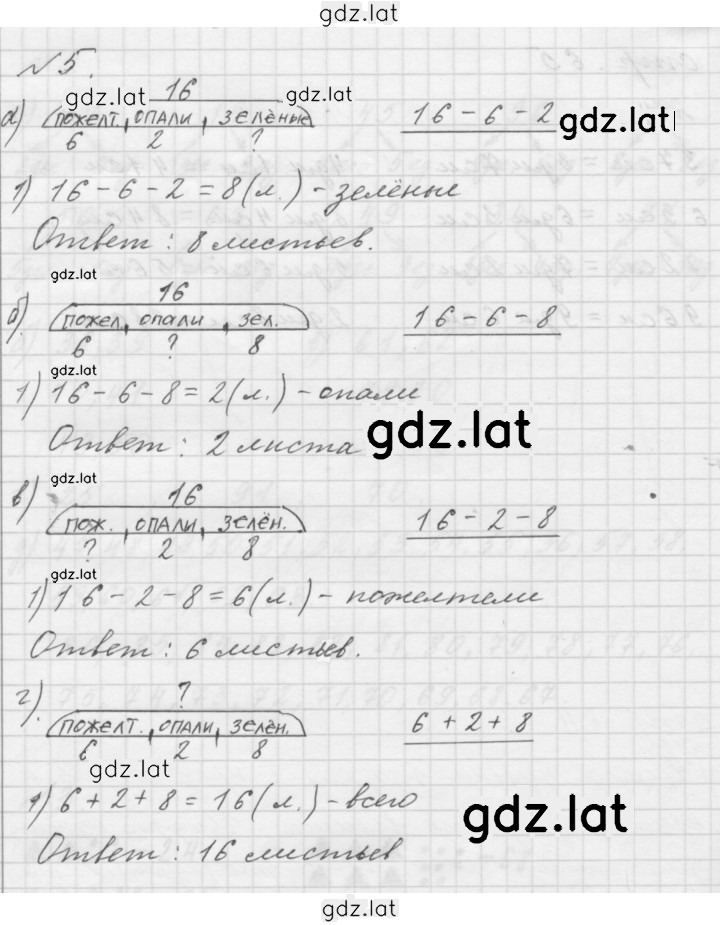 gdz.lat
№ 5.
16
gdz.lat gdz.lat
а) пожелт., опали, зелёные 16 - 6 - 2
6 2 ? gdz.lat
1) 16 - 6 - 2 = 8 (л.) - зелёные
Ответ: 8 листьев.
gdz.lat
16
б) пожел., опали, зел. 16 - 6 - 8
6 ? 8
gdz.lat
1) 16 - 6 - 8 = 2 (л.) - опали
Ответ: 2 листа gdz.lat
gdz.lat
16
в) пож., опали, зелён. 16 - 2 - 8
? 2 8
gdz.lat
1) 16 - 2 - 8 = 6 (л.) - пожелтели
Ответ: 6 листьев.
?
г) пожелт., опали, зелён. 6 + 2 + 8
6 2 8
gdz.lat
1) 6 + 2 + 8 = 16 (л.) - всего
gdz.lat
Ответ: 16 листьев
gdz.lat